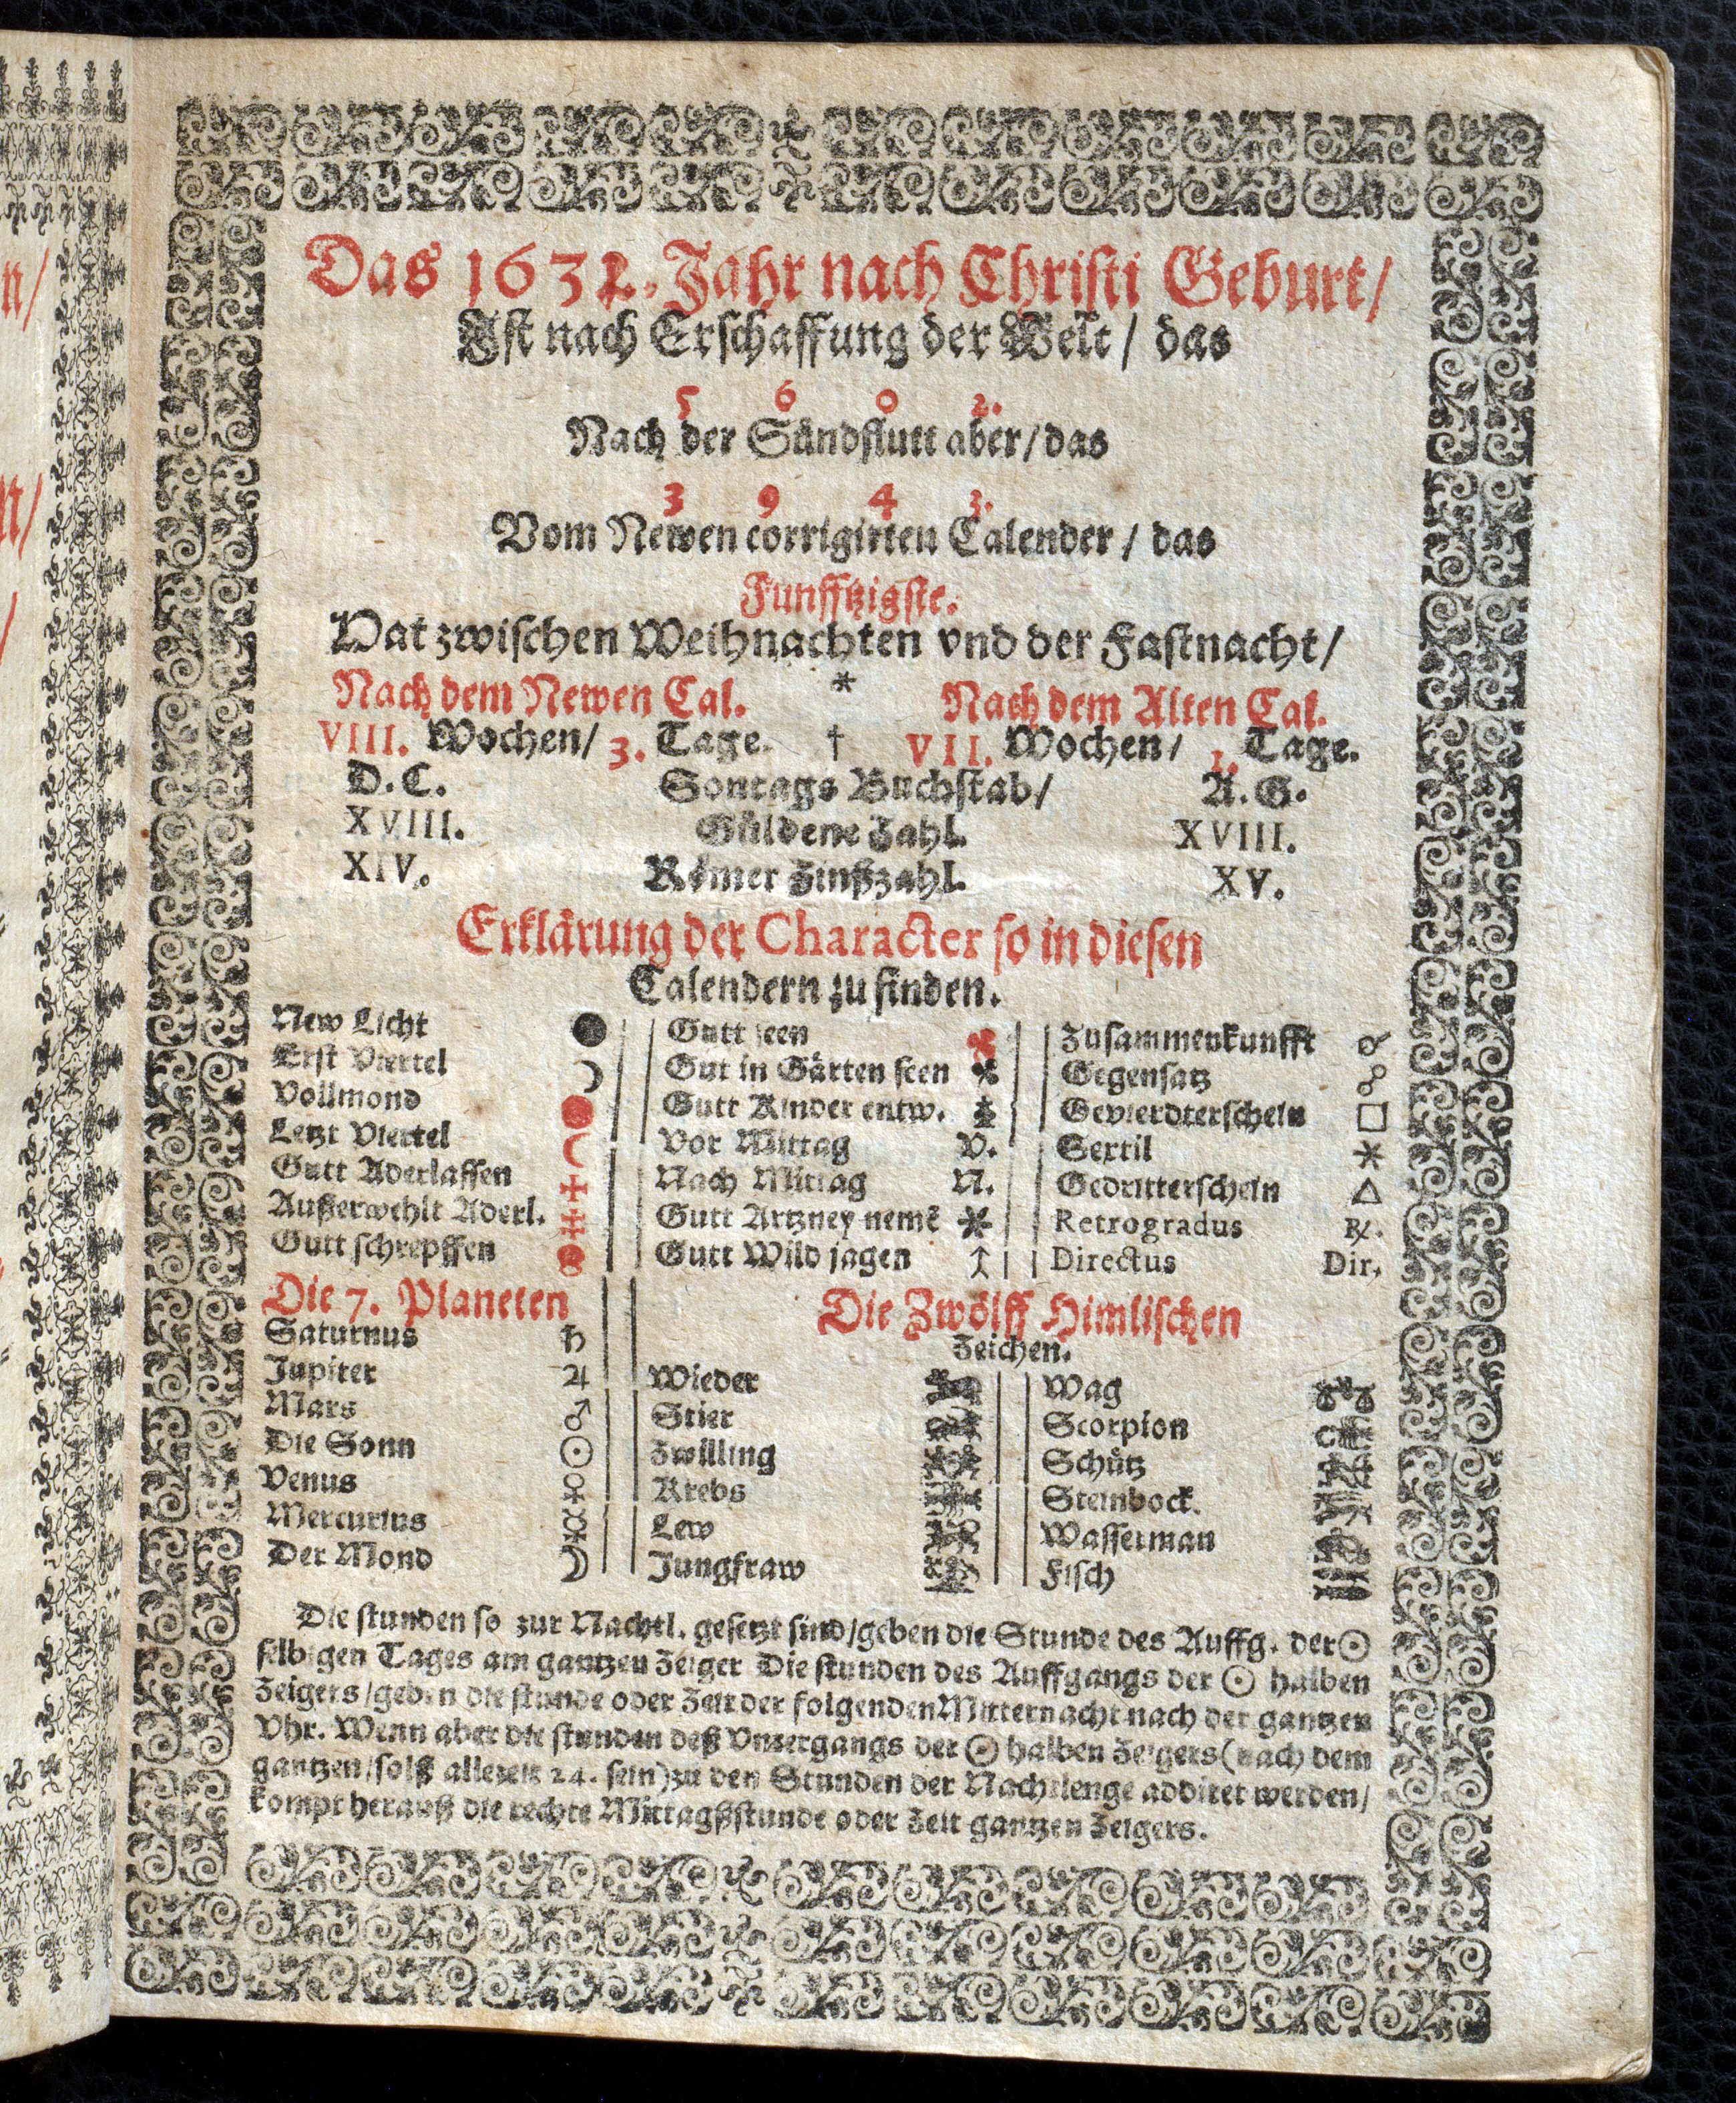 Das 1632. Jahr nach Christi Geburt/
Ist nach Erschaffung der Welt/ das
5 6 0 2.
Nach der Sündflutt aber/das
3 9 4 3.
Vom Newen corrigirten Calender/ das
Funfftzigste.
Hat zwischen Weihnachten vnd der Fastnacht/
Nach dem Newen Cal. * Nach dem Alten Cal.
VIII. Wochen/ 3. Tage. † VII. Wochen/ 1. Tage.
D.C. Sontags Buchstab/ A.G.
XVIII. Güldene Zahl. XVIII.
XIV. Römer Zinßzahl. XV.
Erklärung der Character so in diesen
Calendern zu finden.
New Licht ●
Erst Viertel ☽
Vollmond ●
Letzt Viertel ☾
Gutt Aderlassen
Außerwehlt Aderl.
Gutt schrepffen
Gutt seen
Gut in Gärten seen
Gutt Kinder entw.
Vor Mittag V.
Nach Mittag N.
Gutt Artzney nemẽ
Gutt Wild jagen
Zusammenkunfft ☌
Gegensatz ☍
Gevierdterschein □
Sextil ⚹
Gedritterschein △
Retrogradus ℞.
Directus Dir.
Die 7. Planeten
Saturnus ♄
Jupiter ♃
Mars ♂
Die Sonn ☉
Venus ♀
Mercurius ☿
Der Mond ☽
Die Zwölff Himlischen
Zeichen.
Wieder
Stier
Zwilling
Krebs
Lew
Jungfraw
Wag
Scorpion
Schütz
Steinbock.
Wasserman
Fisch
Die stunden so zur Nachtl. gesetzt sind/geben die Stunde des Auffg. der ☉
selbigen Tages am gantzen Zeiger Die stunden des Auffgangs der ☉ halben
Zeigers/geben die stunde oder Zeit der folgenden Mitternacht nach der gantzen
Vhr. Wenn aber die stunden deß Vntergangs der ☉ halben Zeigers (nach dem
gantzen/solß allezeit 24. sein) zu den Stunden der Nachtlenge addiret werden/
kompt herauß die rechte Mittagßstunde oder Zeit gantzen Zeigers.